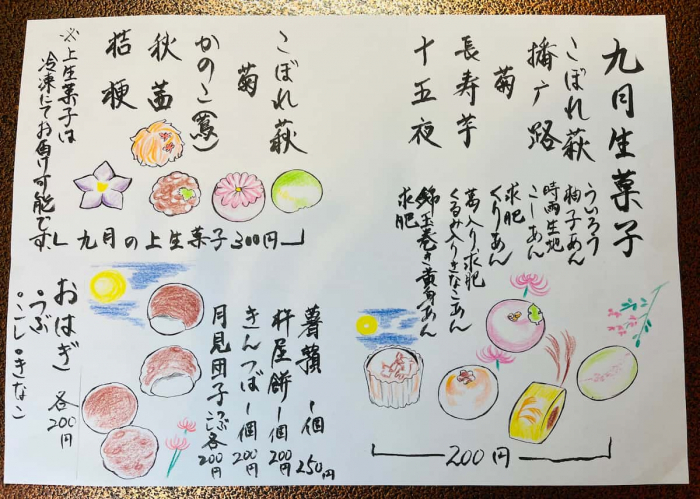 九月生菓子
こぼれ萩
ういろう
柚子あん
播广路
時雨生地
こしあん
菊
求肥
くりあん
長寿芋
葛入り求肥
くるみ入りきなこあん
十五夜
錦玉巻き黄身あん
求肥
200円
こぼれ萩
菊
かのこ(鴬)
秋茜
桔梗
九月の上生菓子300円
※上生菓子は
冷凍にてお届け可能です。
薯蕷一個 250円
杵屋餅一個 200円
きんつば一個 200円
月見団子 つぶ こし 各200円
おはぎ 各200円
・つぶ
・こし・きなこ